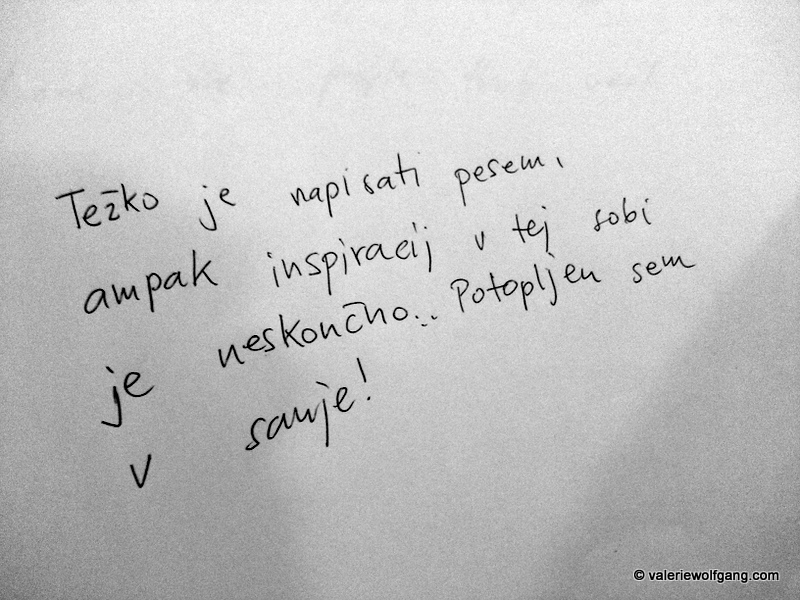 Težko je napisati pesem,
ampak inspiracij v tej sobi
je neskončno... Potopljen sem
v sanje!
© valeriewolfgang.com